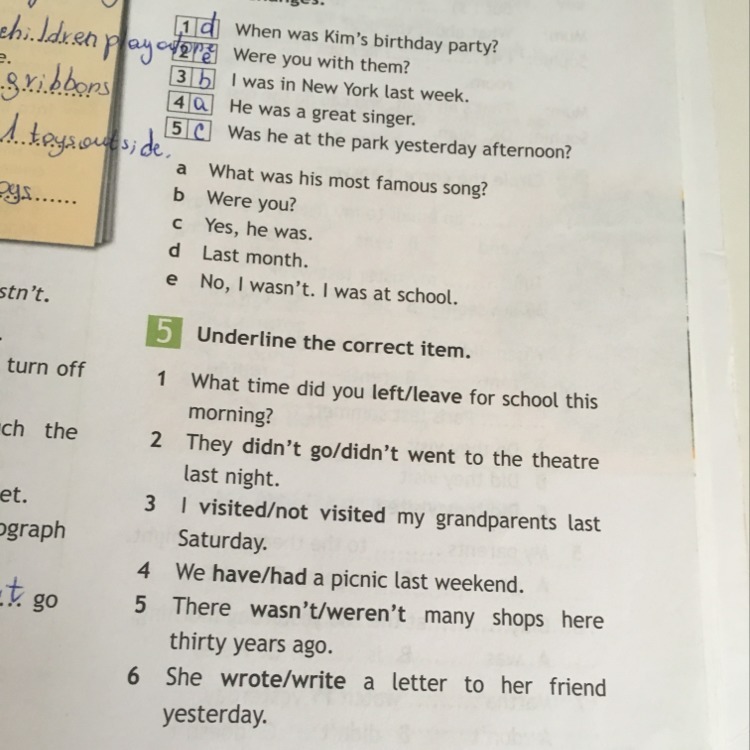 children play
gribbons
toys outside.
oys......
stn't.
turn off
ch the
et.
ograph
t go
1 d When was Kim's birthday party?
2 e Were you with them?
3 b I was in New York last week.
4 a He was a great singer.
5 c Was he at the park yesterday afternoon?
a What was his most famous song?
b Were you?
c Yes, he was.
d Last month.
e No, I wasn't. I was at school.
5 Underline the correct item.
1 What time did you left/leave for school this
morning?
2 They didn't go/didn't went to the theatre
last night.
3 I visited/not visited my grandparents last
Saturday.
4 We have/had a picnic last weekend.
5 There wasn't/weren't many shops here
thirty years ago.
6 She wrote/write a letter to her friend
yesterday.